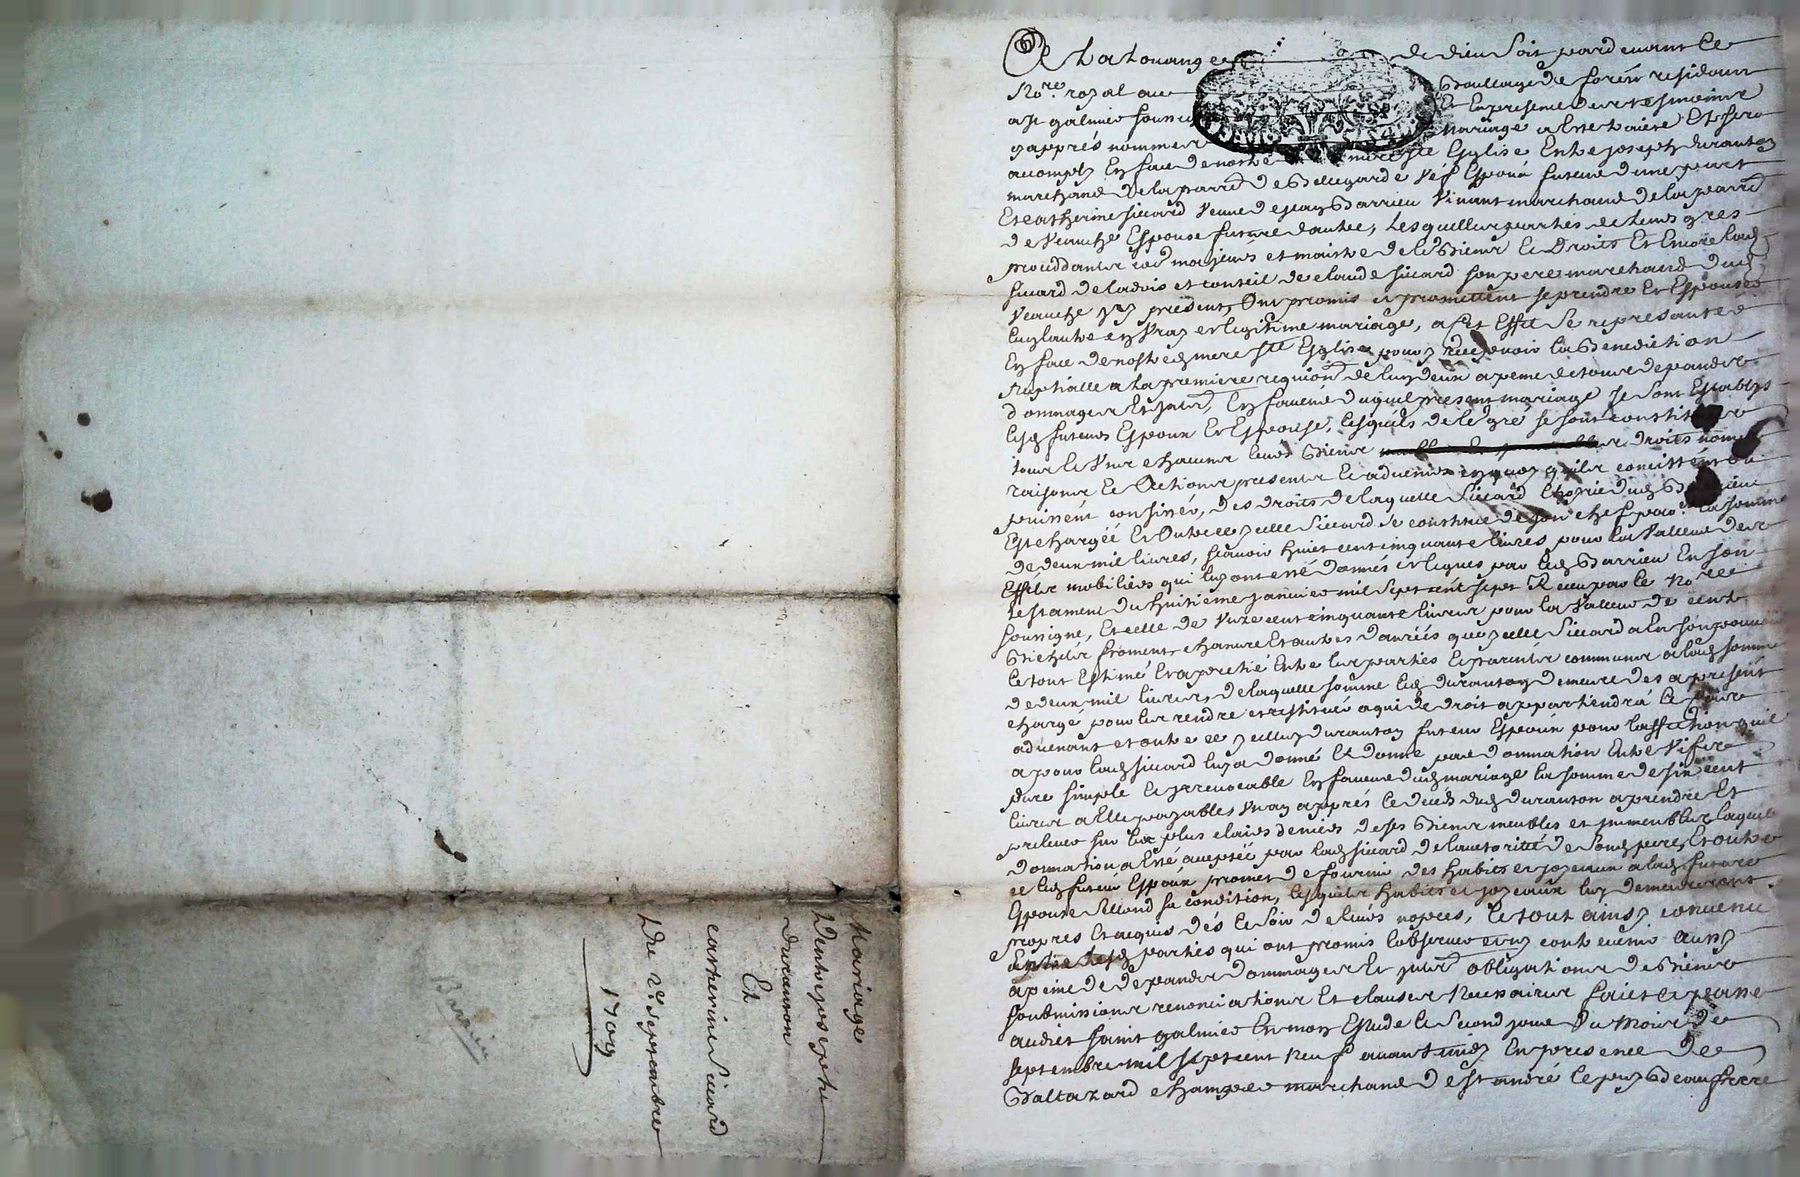 A La Louange de dieu soit pardevant le
No.re royal au Bailliage de forest residant
a st galmier soubz Et En presence des tesmoins
cy appres nommes mariage a Este traicté Et sera
accomply En face de nostre mere ste Eglise Entre joseph duranton
marchand de la parr.e de Bellegarde Espoux futeur d'une part
Et catherine siccard veuve de jean Barrieu vivant marchand de la parr.e
de veauche Espouse future d'autre, Lesquelles parties de Leurs gres
comme majeurs et maistre de Biens Et Droits Et Encore lad.
siccard de l'advis et conseil de claude siccard son pere marchand dud.
veauche present, Ont promis et promettent se prendre Et Espouser
L'un l'autre en vray et legitime mariage, a cet Effet se representer
En face de nostre d. mere ste Eglise pour y recevoir la Benediction
Nuptialle a La premiere requi.on de l'un d'eux a peine de tous depandz
dommages Et inter., En faveur duquel present mariage se sont Establys
lesd. futeurs Espoux Et Espouse, lesquels de le gré se sont constitués
tous Et uns chacuns leurs Biens droits noms
raisons Et Actions presents Et advenir en quoy qu'ils consistent ou
puissent consister, des droits de laquelle Siccard
Est chargée Et Outre ce ycelle Siccard se constitue de son chef la somme
de deux mil livres, scavoir huict cent cinquante livres pour la valleur des
Effets mobiliers qui luy ont esté donnés Et legués par led. Barrieu En son
testament du huitieme janvier mil sept cent sept Receu par le No.re
soubsigne, Et celle de unze cent cinquante livres pour la valleur de
Bichets froment, chanvre Et autres danrées que ycelle Siccard a En son pouvoir
le tout Estimé Et apretié Entre les parties Et parents communs a lad. somme
de deux mil livres, de laquelle somme led. duranton demeure des a present
chargé pour les rendre et restituer a qui de droit appartiendra le
advenant et outre ce ycelluy duranton futeur Espoux pour l'affection qu'il
a pour lad. siccard luy a donné Et donne par donnation Entre vifs
pure simple Et yrrevocable En faveur dud. mariage la somme de six cent
livres a Elle payables un an appres le deces dud. duranton a prendre Et
prelever sur les plus clairs deniers de ses Biens meubles et jmmeubles laquelle
donnation a Esté acceptée par lad. siccard de l'autorité de sond. pere, Et outre
ce led. futeur Espoux promet de fournir des habits et joyeaux a lad. future
Espouse sellond sa condition, lesquels habits et joyeaux luy demeureront
propres Et acquis dés le soir de leurs nopces, le tout ainsy convenu
entre lesd. parties qui ont promis l'observer et ny contrevenir
a peine de depandz dommages Et inter. obligations de Biens
soubmissions renonciations Et clauses Necessaires faict et passé
audict saint galmier En mon Estude le second jour du Mois de
septembre mil sept cent Neuf avant midy En presence de
Baltazard marchand de st andré le puy Beaufrere
Mariage
D'entre joseph
duranton
Et
catherine Siccard
Du 2e septembre
1709
Barrieu